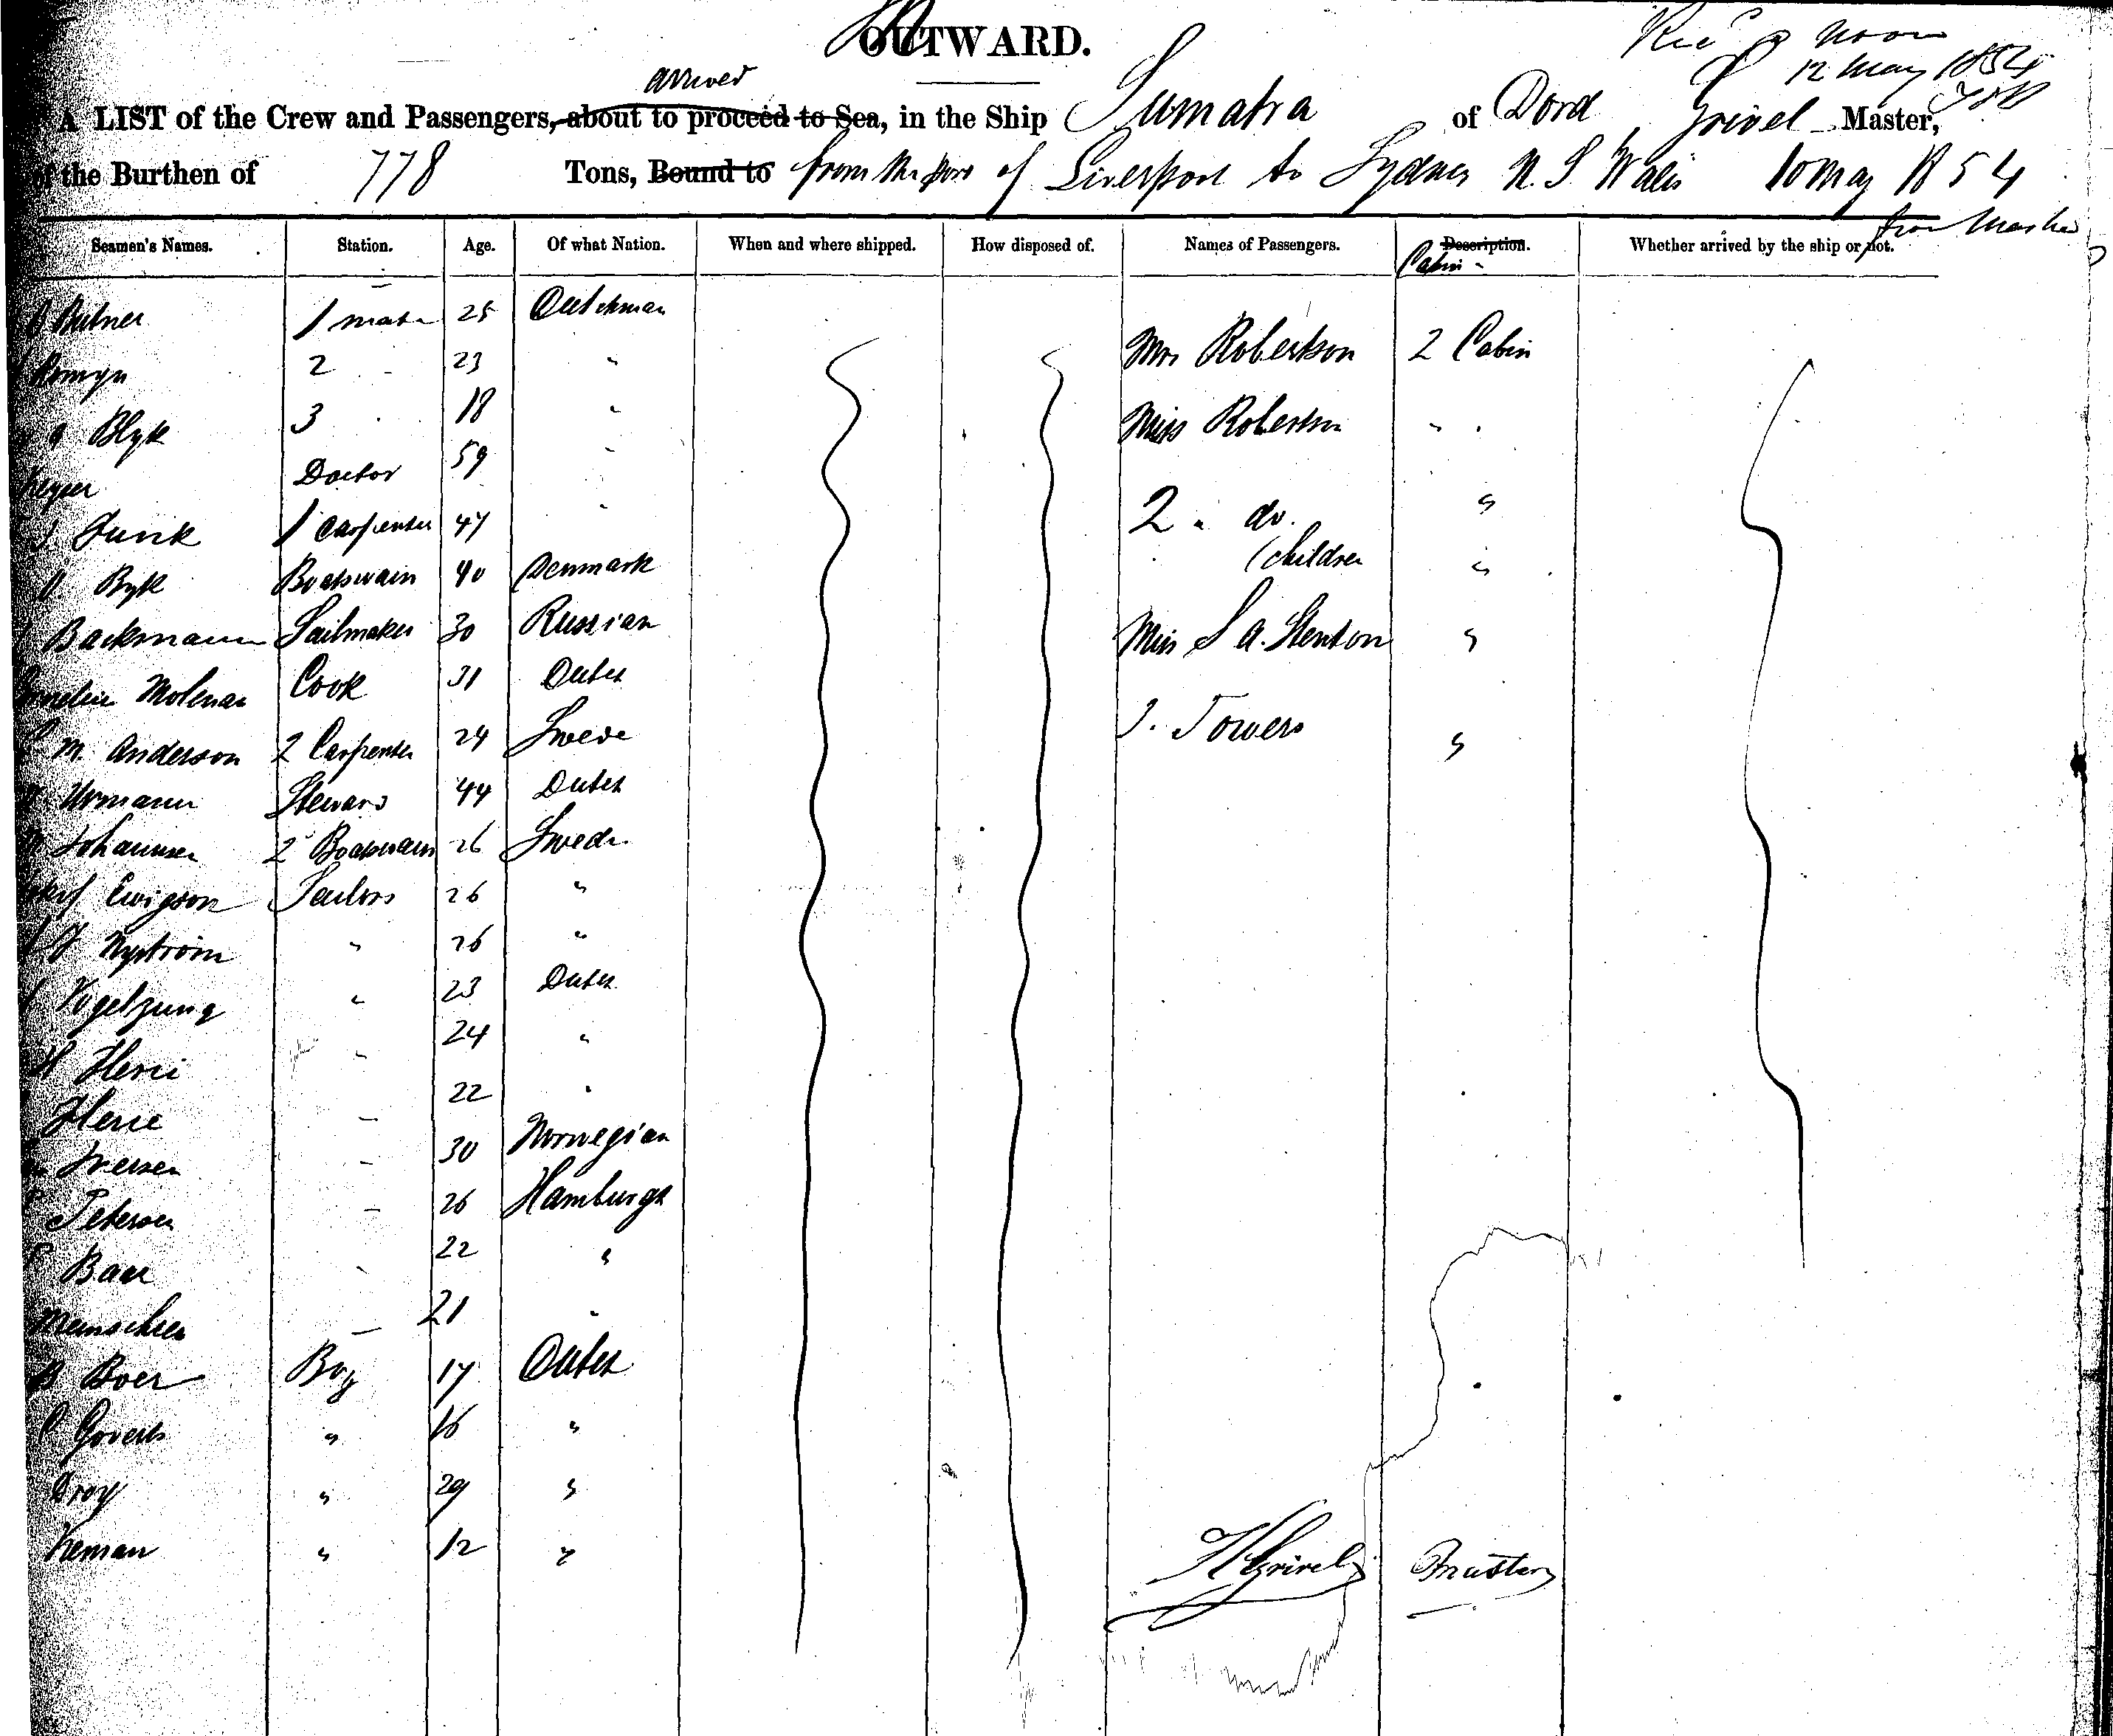 OUTWARD.
Noon
12 May 1854
arrived
A LIST of the Crew and Passengers, about to proceed to Sea, in the Ship Sumatra of Dord Grivel Master,
of the Burthen of 778 Tons, Bound to from the port of Liverpool to Sydney N. S Wales 10 May 1854
Seamen's Names. Station. Age. Of what Nation. When and where shipped. How disposed of. Names of Passengers. Description. Whether arrived by the ship or not.
Cabin
Butner 1 mate 25 Dutchman
Romyn 2 " 23 " Mrs Robertson 2 Cabin
Blyk 3 " 18 " Miss Robertson " "
Keyser Doctor 59 "
J Junk 1 Carpenter 47 " 2 " do. "
Byk Boatswain 40 Denmark (children "
Backmann Sailmaker 30 Russian Miss S A. Stenton "
Cornelius Molenar Cook 31 Dutch
M. Anderson 2 Carpenter 24 Swede J. Towers "
Urmann Steward 44 Dutch
Johannsen 2 Boatswain 26 Swede
Ewigson Sailors 26 "
Nystrom " 26 "
Vogelzung " 23 Dutch
H Herri " 24 "
Herre " 22 "
Iversen " 30 Norwegian
Petersen " 26 Hamburgh
Baar " 22 "
Meinschien " 21 "
B Boer Boy 17 Dutch
C Goverts " 16 "
Droy " 29 "
Keman " 12 "
H Grivel Master